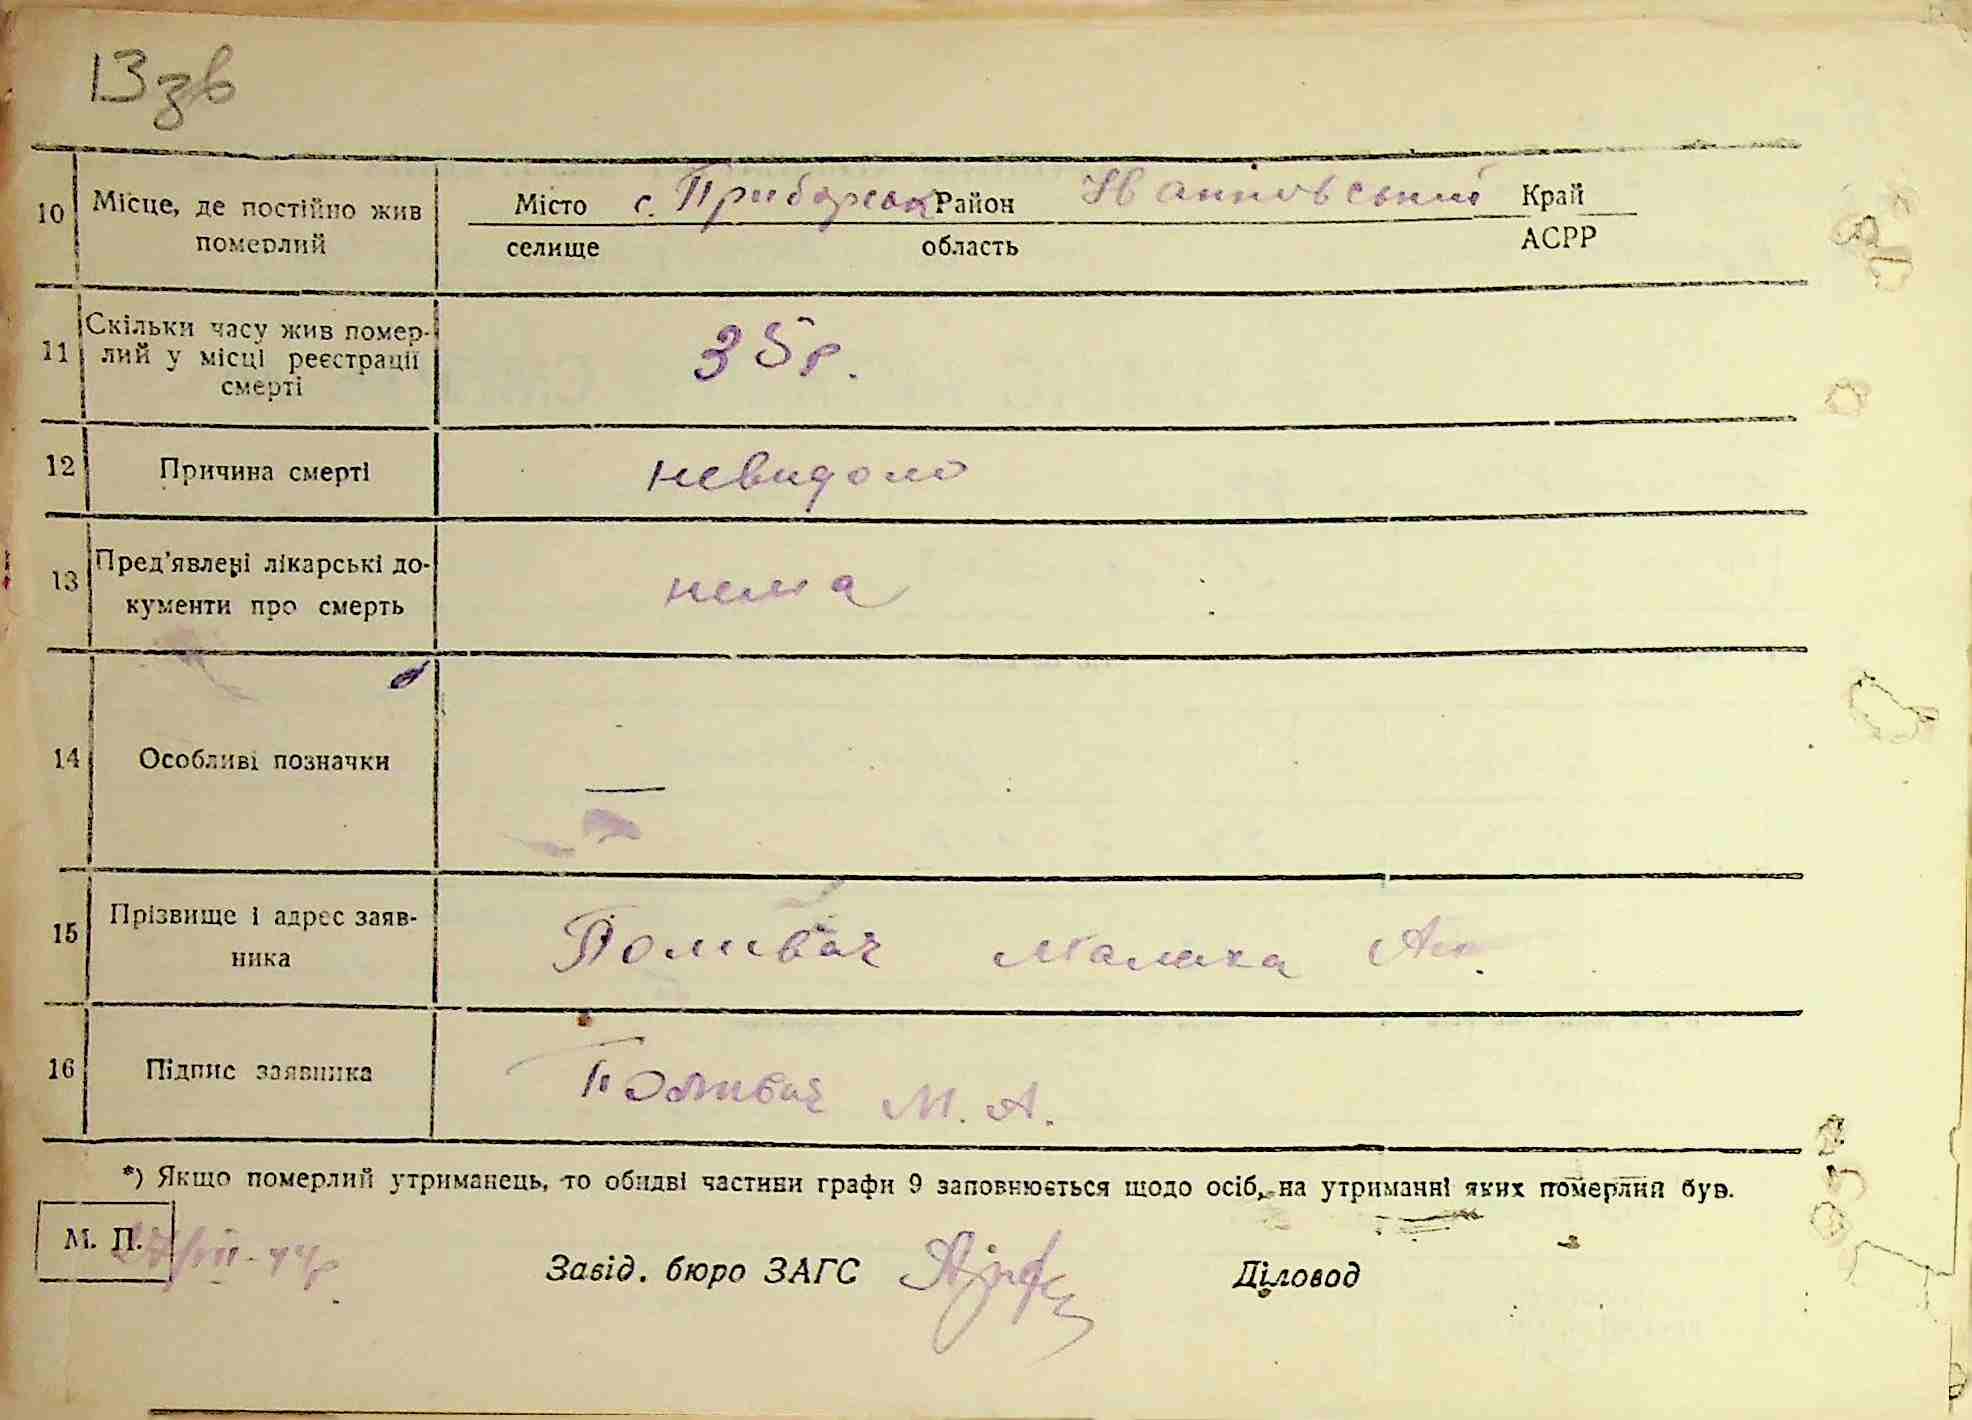 13 зв
10 Місце, де постійно жив померлий
Місто с. Приборськ Район Іванковський Край
селище область АСРР
11 Скільки часу жив помер-
лий у місці реєстрації
смерті
35 р.
12 Причина смерті невидомо
13 Пред'явлені лікарські до-
кументи про смерть
нема
14 Особливі позначки —
15 Прізвище і адрес заяв-
ника
Поливач Малака
16 Підпис заявника Поливач М. А.
*) Якщо померлий утриманець, то обидві частини графи 9 заповнюється щодо осіб, на утриманні яких померлий був.
М. П.
Завід. бюро ЗАГС Діловод